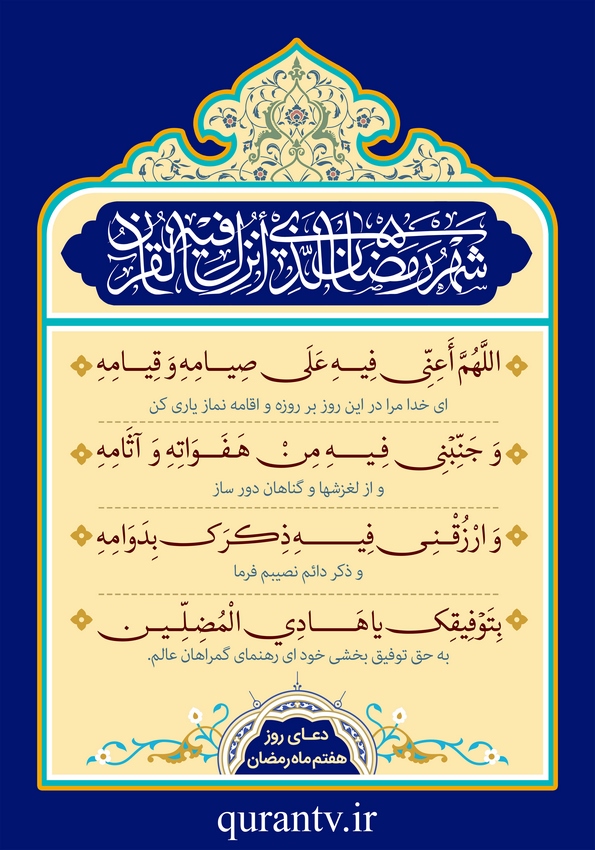 شَهْرُ رَمَضَانَ الَّذِي أُنْزِلَ فِيهِ الْقُرْآنُ
اللَّهُمَّ أَعِنِّی فِیهِ عَلَی صِیامِهِ وَ قِیامِهِ
ای خدا مرا در این روز بر روزه و اقامه نماز یاری کن
وَ جَنِّبْنِی فِیهِ مِنْ هَفَوَاتِهِ وَ آثَامِهِ
و از لغزشها و گناهان دور ساز
وَ ارْزُقْنِی فِیهِ ذِکرَک بِدَوَامِهِ
و ذکر دائم نصیبم فرما
بِتَوْفِیقِک یا هَادِي الْمُضِلِّینَ
به حق توفیق بخشی خود ای رهنمای گمراهان عالم.
دعای روز
هفتم ماه رمضان
qurantv.ir